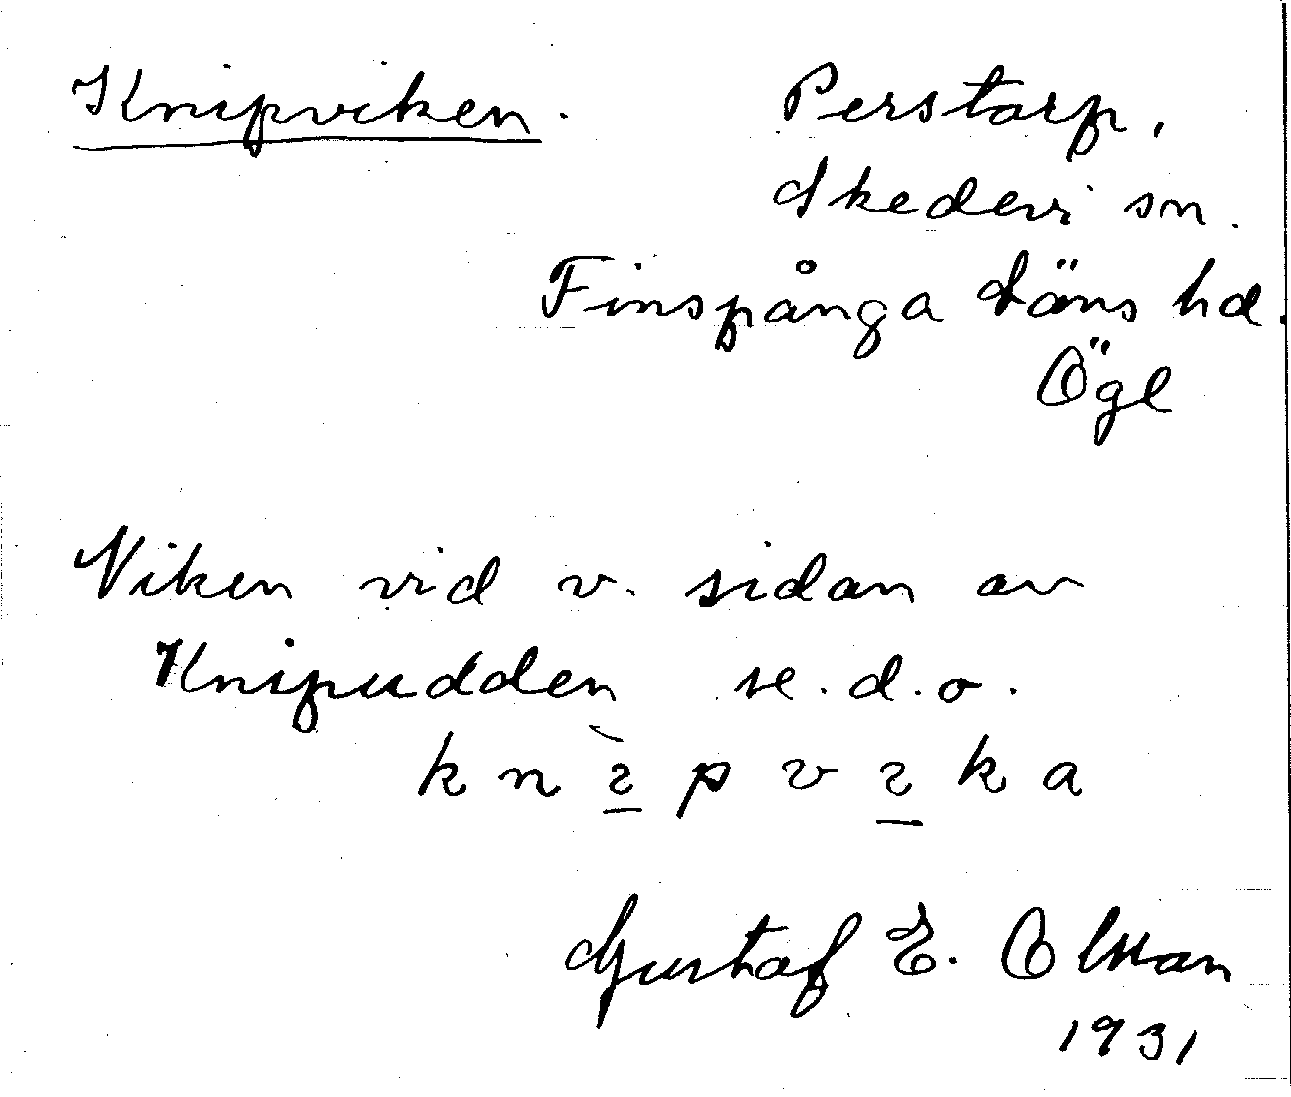 Knipviken. Perstorp,
Skedevi sn.
Finspånga läns hd.
Ögl
Viken vid v. sidan av
Knipudden se. d. o.
k n ꙇ̲̀ p v ꙇ̲ k a
Gustaf E. Olsson
1931